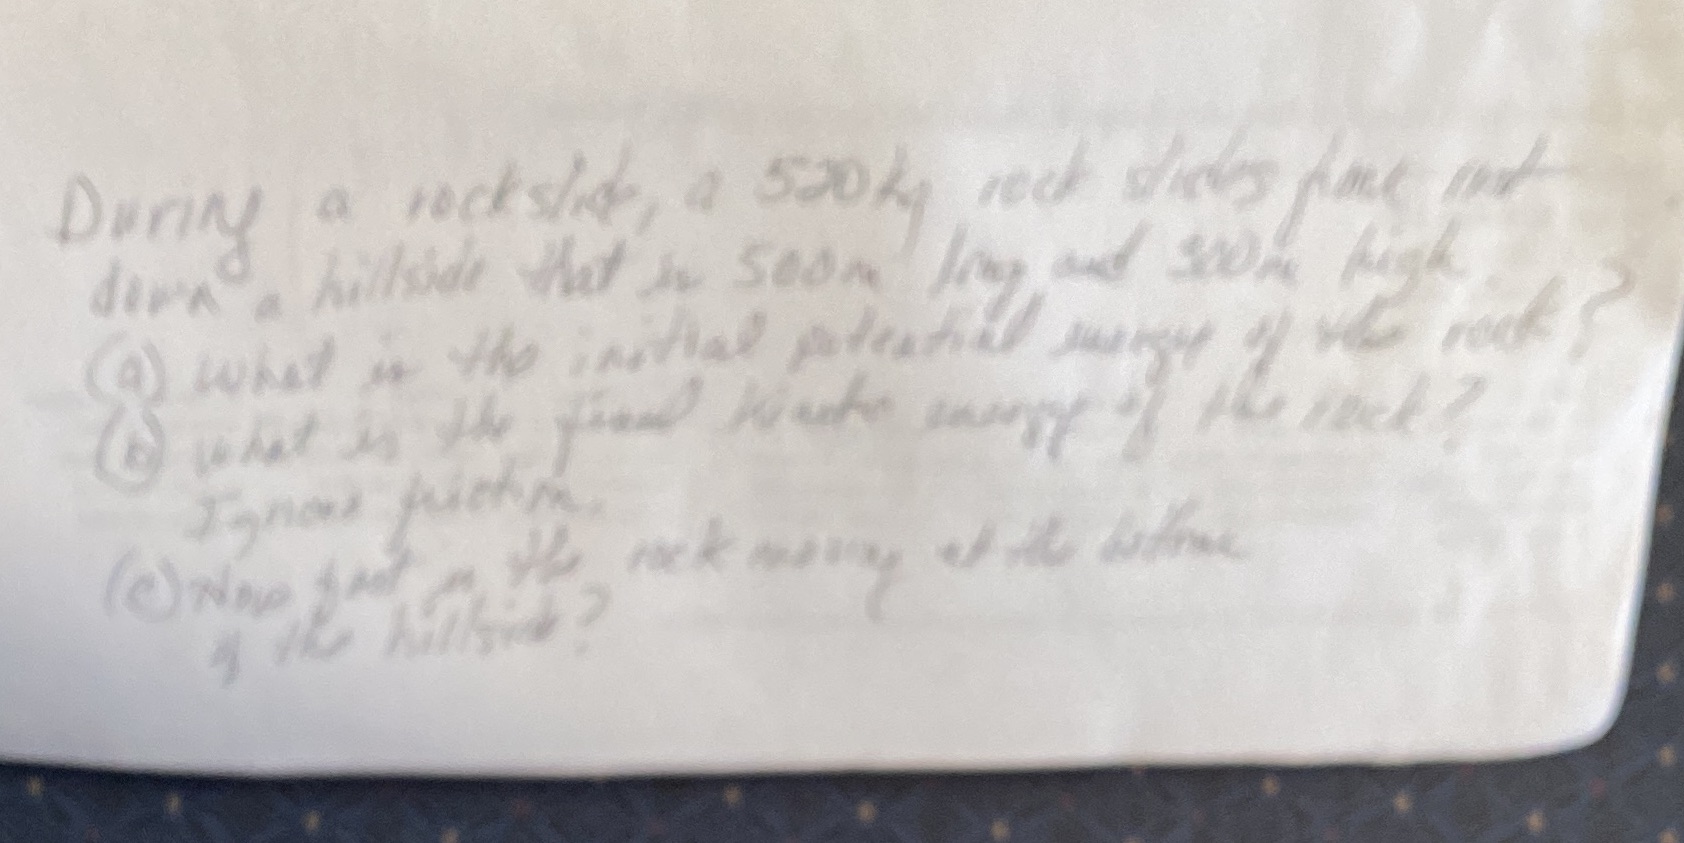 During a rockslide, a 520 kg rock slides from rest
down a hillside that is 500 m long and 300 m high.
(a) What is the initial potential energy of the rock?
(b) What is the final kinetic energy of the rock?
Ignore friction.
(c) How fast is the rock moving at the bottom
of the hillside?